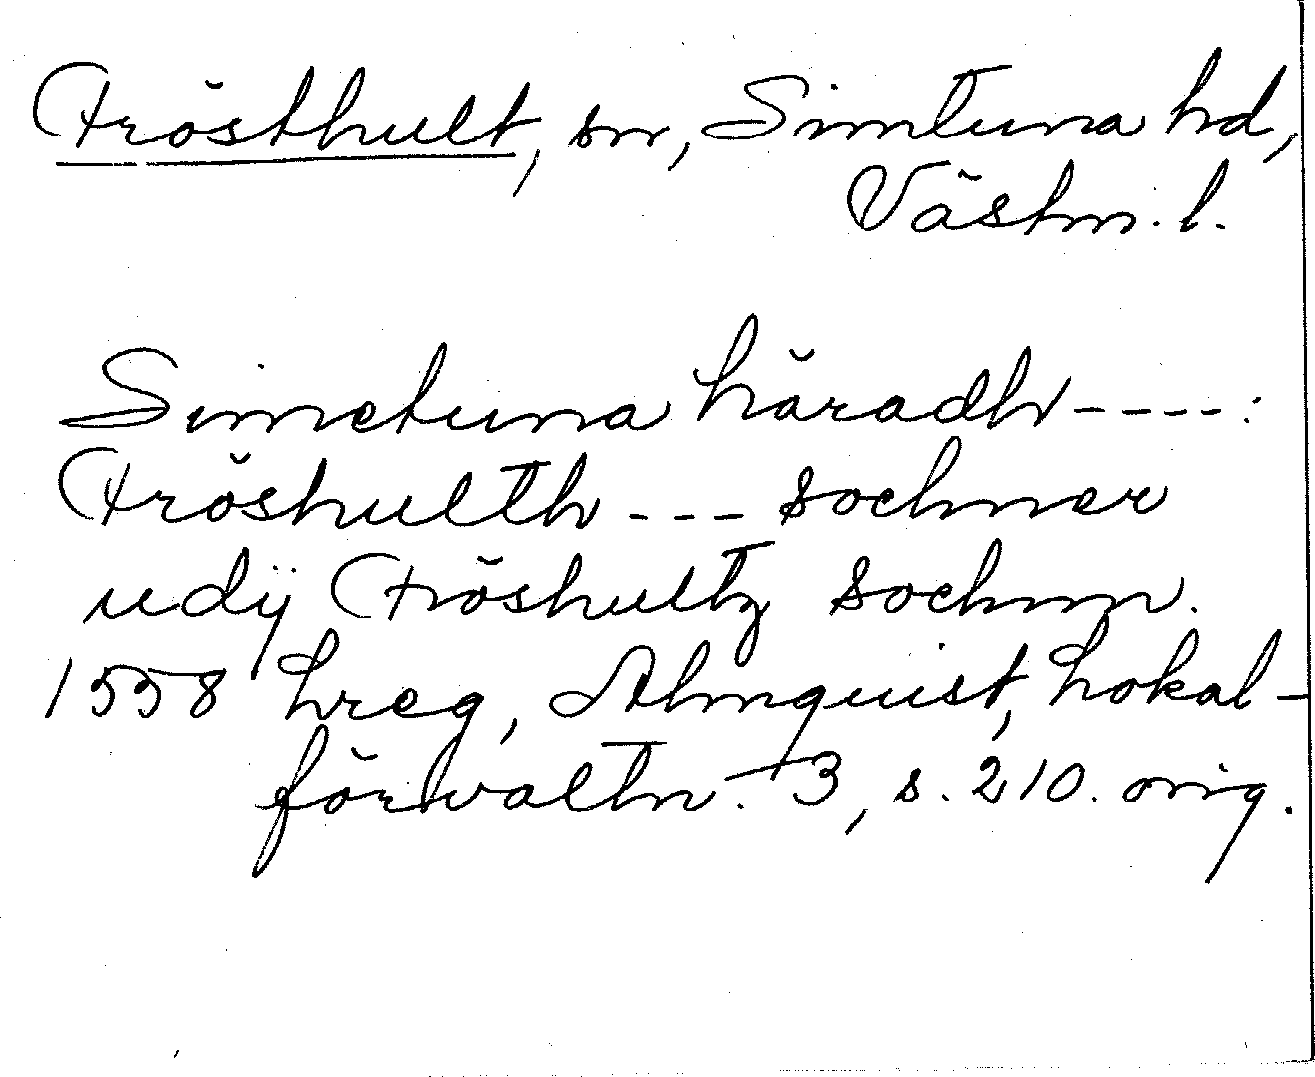 Frösthult, sn, Simtuna hd,
Västm. l.
Simetuna häradh ----:
Fröshullth --- sochner
udÿ Fröshulltz sochnn.
1558 hreg, Almquist, Lokal-
förvaltn. 3, s. 210. orig.